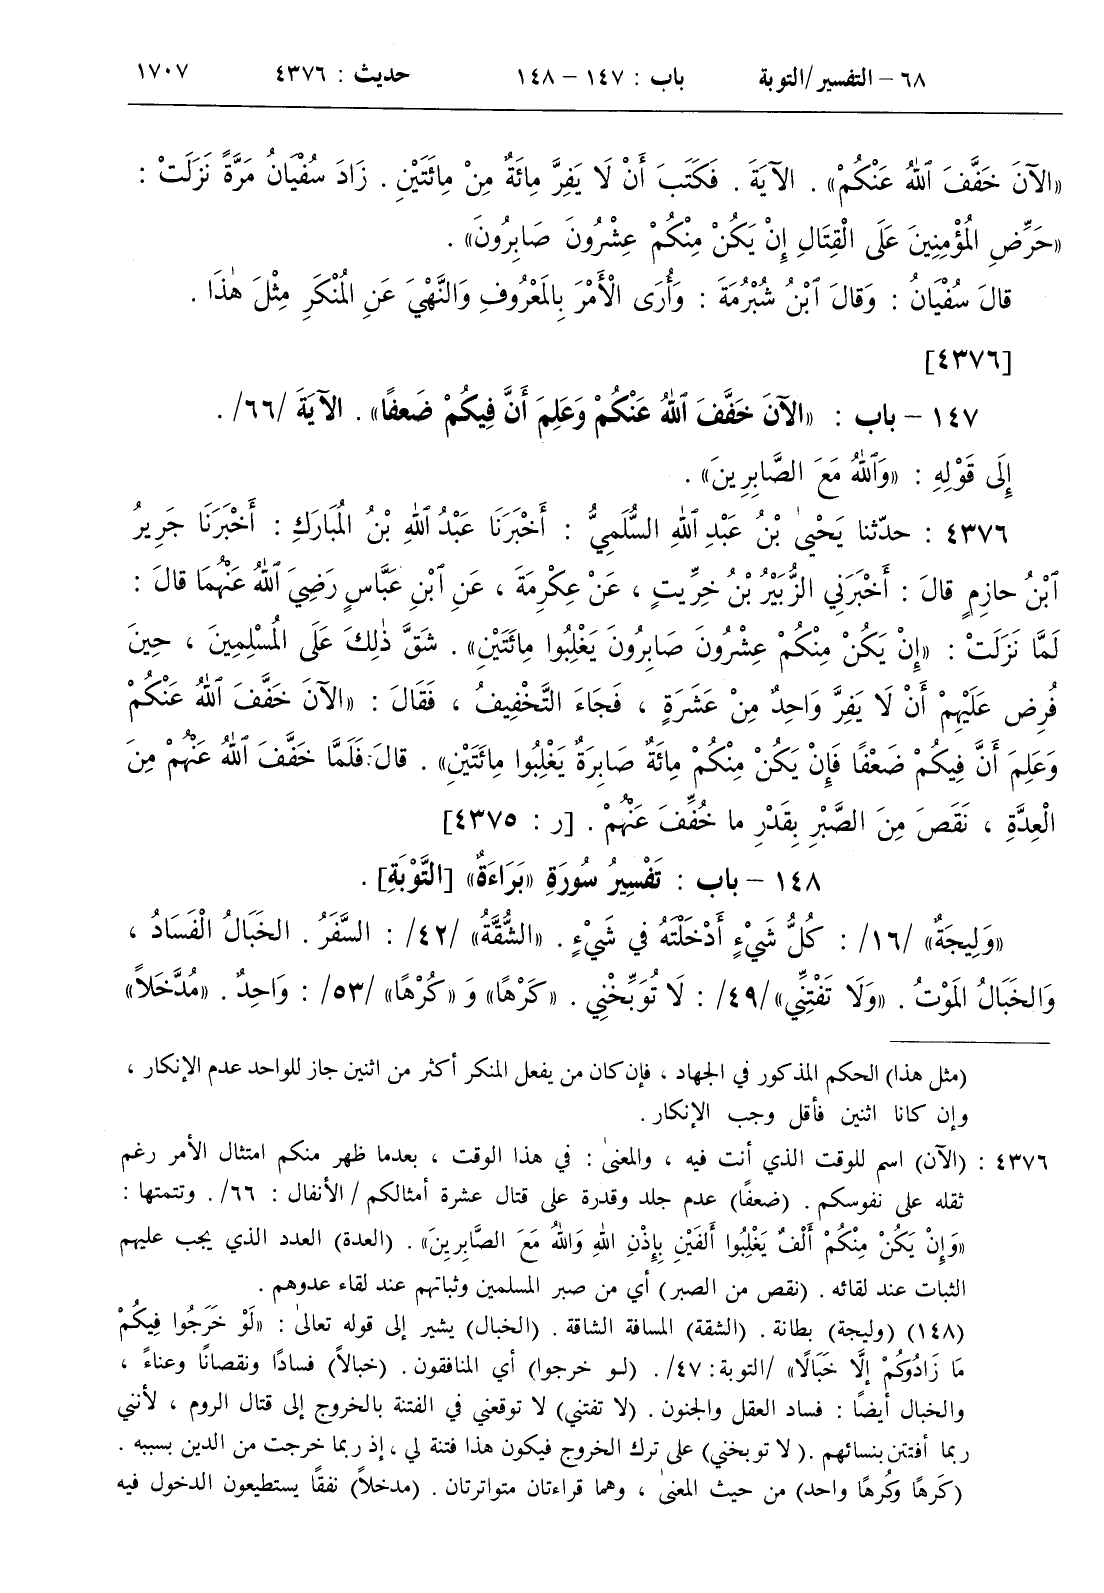 ٦٨ – التفسير/التوبة باب : ١٤٧ – ١٤٨ حديث : ٤٣٧٦ ١٧٠٧
«الآنَ خَفَّفَ ٱللهُ عَنْكُمْ» . الآيَةَ . فَكَتَبَ أَنْ لَا يَفِرَّ مِائَةٌ مِنْ مِائَتَيْنِ . زَادَ سُفْيَانُ مَرَّةً نَزَلَتْ :
«حَرِّضِ المُؤْمِنِينَ عَلَى الْقِتَالِ إِنْ يَكُنْ مِنْكُمْ عِشْرُونَ صَابِرُونَ» .
قالَ سُفْيَانُ : وَقالَ ٱبْنُ شُبْرُمَةَ : وَأُرَى الْأَمْرَ بِالمَعْرُوفِ وَالنَّهْيَ عَنِ المُنْكَرِ مِثْلَ هٰذَا .
[٤٣٧٦]
١٤٧ – باب : «الآنَ خَفَّفَ ٱللهُ عَنْكُمْ وَعَلِمَ أَنَّ فِيكُمْ ضَعفًا» . الآيَةَ /٦٦/ .
إِلَى قَوْلِهِ : «وَٱللهُ مَعَ الصَّابِرِينَ» .
٤٣٧٦ : حدّثنا يَحْيىٰ بْنُ عَبْدِ ٱللهِ السُّلَمِيُّ : أَخْبَرَنَا عَبْدُ ٱللهِ بْنُ المُبَارَكِ : أَخْبَرَنَا جَرِيرُ
ٱبْنُ حازِمٍ قالَ : أَخْبَرَنِي الزُّبَيْرُ بْنُ خِرِّيتٍ ، عَنْ عِكْرِمَةَ ، عَنِ ٱبْنِ عَبَّاسٍ رَضِيَ ٱللهُ عَنْهُمَا قالَ :
لَمَّا نَزَلَتْ : «إِنْ يَكُنْ مِنْكُمْ عِشْرُونَ صَابِرُونَ يَغْلِبُوا مِائَتَيْنِ» . شَقَّ ذٰلِكَ عَلَى المُسْلِمِينَ ، حِينَ
فُرِضَ عَلَيْهِمْ أَنْ لَا يَفِرَّ وَاحِدٌ مِنْ عَشَرَةٍ ، فَجَاءَ التَّخْفِيفُ ، فَقَالَ : «الآنَ خَفَّفَ ٱللهُ عَنْكُمْ
وَعَلِمَ أَنَّ فِيكُمْ ضَعْفًا فَإِنْ يَكُنْ مِنْكُمْ مِائَةٌ صَابِرَةٌ يَغْلِبُوا مِائَتَيْنِ» . قالَ: فَلَمَّا خَفَّفَ ٱللهُ عَنْهُمْ مِنَ
الْعِدَّةِ ، نَقَصَ مِنَ الصَّبْرِ بِقَدْرِ ما خُفِّفَ عَنْهُمْ . [ر : ٤٣٧٥]
١٤٨ – باب : تَفْسِيرُ سُورَةِ «بَرَاءَةٌ» [التَّوْبَةِ] .
«وَلِيجَةٌ» /١٦/ : كُلُّ شَيْءٍ أَدْخَلْتَهُ في شَيْءٍ . «الشُّقَّةُ» /٤٢/ : السَّفَرُ . الخَبَالُ الْفَسَادُ ،
وَالخَبَالُ المَوْتُ . «وَلَا تَفْتِنِّي» /٤٩/ : لَا تُوَبِّخْنِي . «كَرْهًا» وَ «كُرْهًا» /٥٣/ : وَاحِدٌ . «مُدَّخَلاً»
(مثل هذا) الحكم المذكور في الجهاد ، فإن كان من يفعل المنكر أكثر من اثنين جاز للواحد عدم الإنكار ،
وإن كانا اثنين فأقل وجب الإنكار .
٤٣٧٦ : (الآن) اسم للوقت الذي أنت فيه ، والمعنىٰ : في هذا الوقت ، بعدما ظهر منكم امتثال الأمر رغم
ثقله على نفوسكم . (ضعفًا) عدم جلد وقدرة على قتال عشرة أمثالكم / الأنفال : ٦٦/ . وتتمتها :
«وَإِنْ يَكُنْ مِنْكُمْ أَلْفٌ يَغْلِبُوا أَلْفَيْنِ بِإِذْنِ اللهِ وَاللهُ مَعَ الصَّابِرِينَ» . (العدة) العدد الذي يجب عليهم
الثبات عند لقائه . (نقص من الصبر) أي من صبر المسلمين وثباتهم عند لقاء عدوهم .
(١٤٨) (وليجة) بطانة . (الشقة) المسافة الشاقة . (الخبال) يشير إلى قوله تعالىٰ : «لَوْ خَرَجُوا فِيكُمْ
مَا زَادُوكُمْ إِلَّا خَبَالًا» /التوبة: ٤٧/ . (لو خرجوا) أي المنافقون . (خبالاً) فسادًا ونقصانًا وعناءً ،
والخبال أيضًا : فساد العقل والجنون . (لا تفتني) لا توقعني في الفتنة بالخروج إلى قتال الروم ، لأنني
ربما أفتتن بنسائهم . ( لا توبخني) على ترك الخروج فيكون هذا فتنة لي ، إذ ربما خرجت من الدين بسببه .
(كَرهًا وكُرهًا واحد) من حيث المعنىٰ ، وهما قراءتان متواترتان . (مدخلاً) نفقًا يستطيعون الدخول فيه